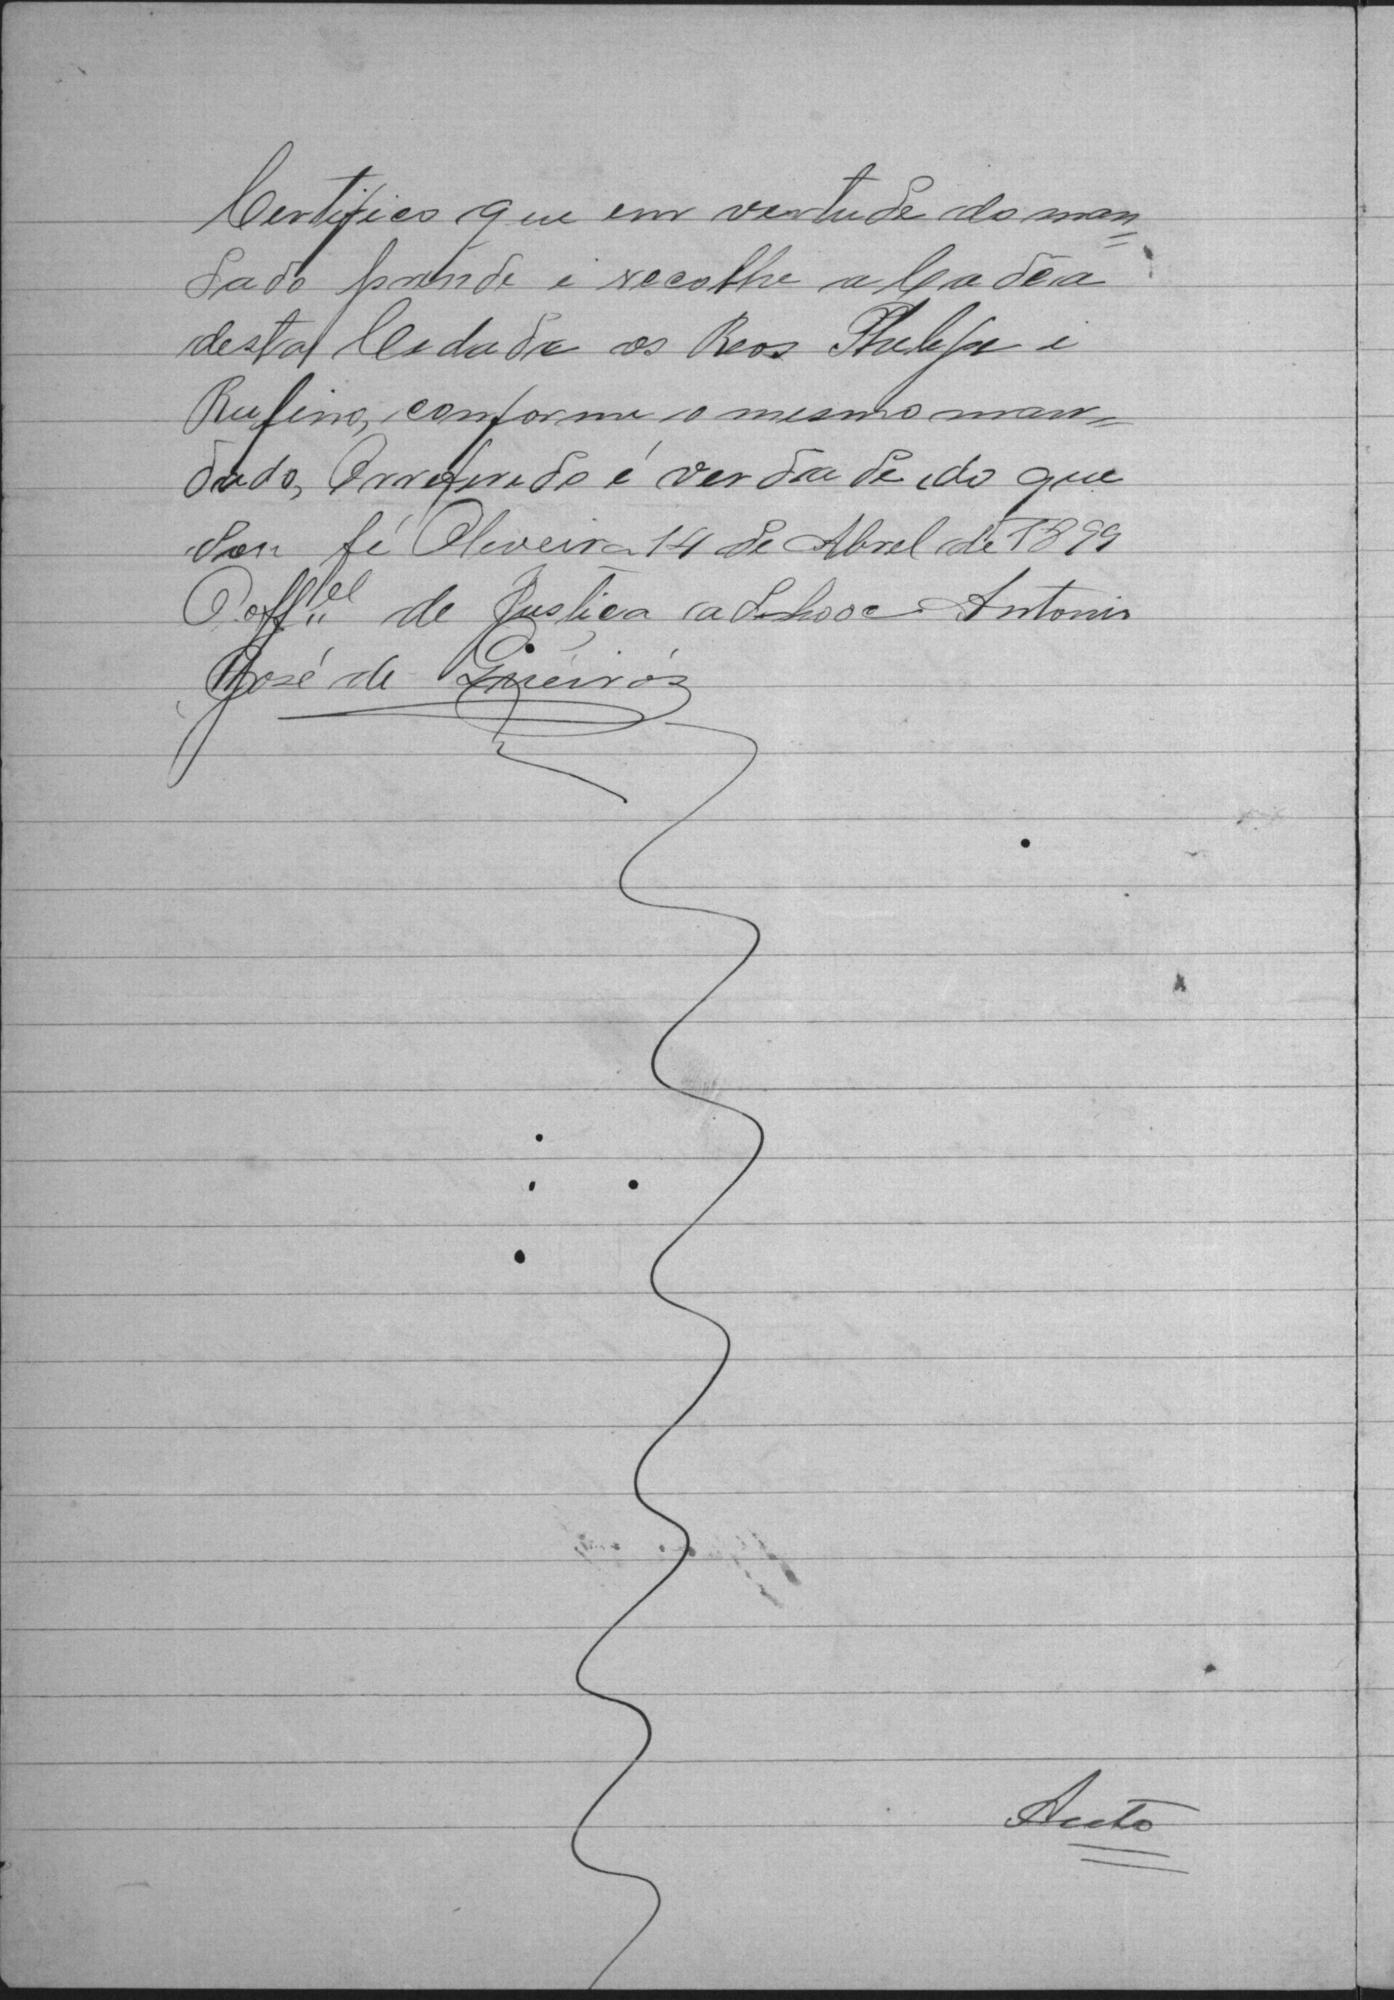 Certifico que em vertude do man=
dado prende i recolhe a Cadêa
desta Cedade os Reos Phelipe i
Rufino, conforme o mesmo man=
dado, Orreferido é verdade do que
dou fé Oliveira 14 de Abrel de 1899
O off.el de Justiça adhooc Antonio
José de Queirós
Auto